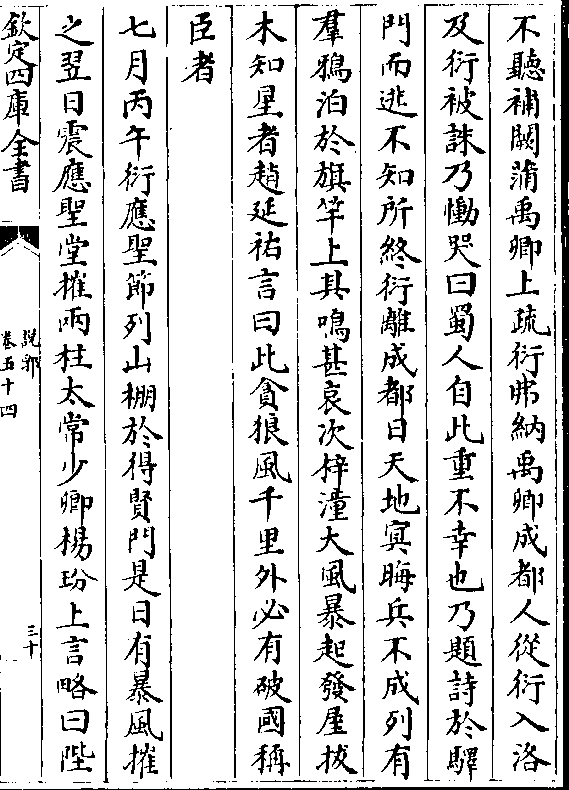 不聽補闕蒲禹卿上疏衍弗納禹卿成都人從衍入洛
及衍被誅乃慟哭曰蜀人自此重不幸也乃題詩於驛
門而逃不知所終衍離成都日天地冥晦兵不成列有
羣鴉泊於旗竿上其鳴甚哀次梓潼大風暴起發屋拔
木知星者趙延祐言曰此貪狼風千里外必有破國稱
臣者
七月丙午衍應聖節列山棚於得賢門是日有暴風摧
之翌日震應聖堂摧兩柱太常少卿楊玢上言略曰陛
欽定四庫全書
說郛
卷五十四
三十